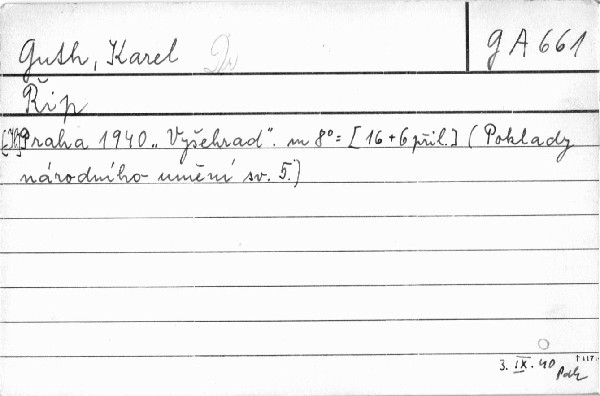 Guth, Karel Dr
g A 661
Řip
Praha 1940 „Vyšehrad". m 8° = [16 + 6 příl.] (Poklady
národního umění sv. 5.)
3. IX. 40